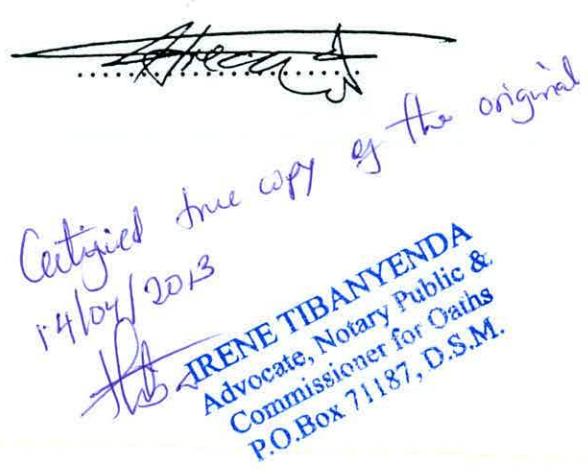 Certified true copy of the original
14/04/2013
IRENE TIBANYENDA
Advocate, Notary Public &
Commissioner for Oaths
P.O.Box 71187, D.S.M.